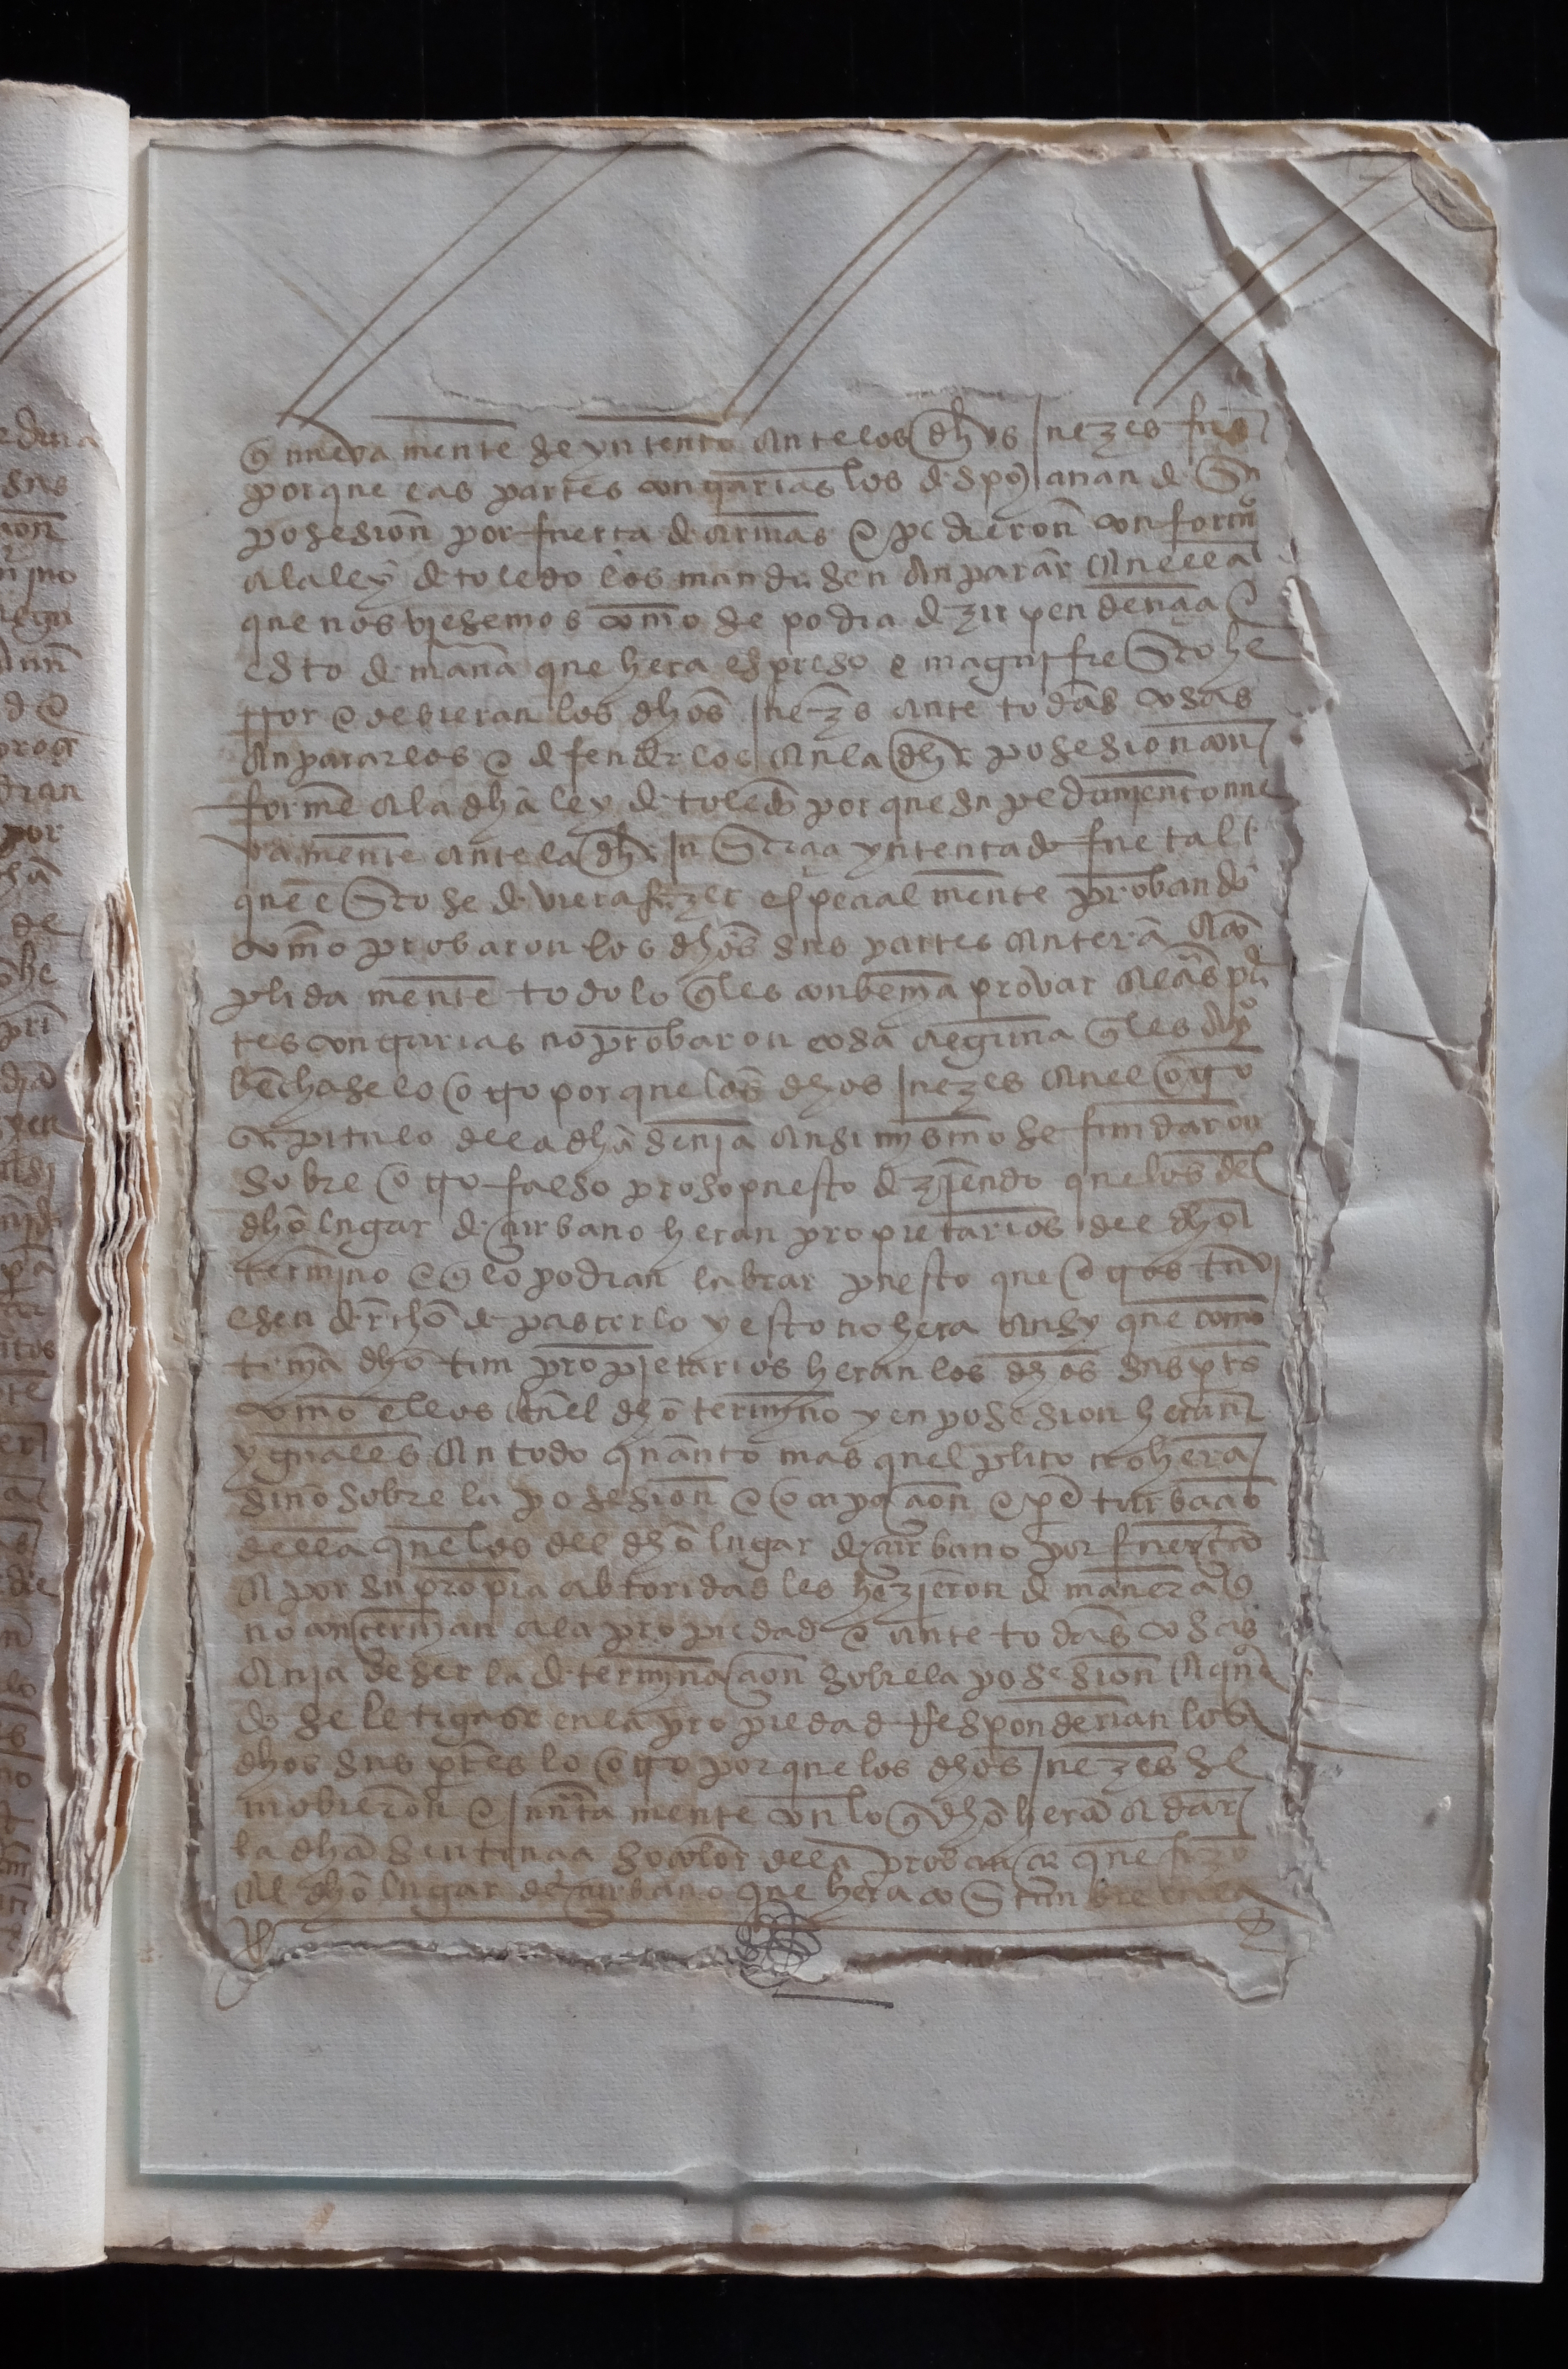 q̃ nueva mente se yntento antelos dhos juezes fue
porque las partes contrarias los despojauan de su
posesion por fuerça de armas e pedieron conforme
ala ley de toledo los mandasen anparar en ella
que nos viesemos como se podia dezir pendençia
esto de manã que hera espreso e magnifiesto he
rror e devieran los dhos juezes ante todas cosas
anpararlos e defenderlos en la dha posesion con
forme ala dha ley de toledo porque su pedimento nue
va mente ante la dha justiçia yntentado fue tal
que esto se deviera fazer espeçial mente probando
como probaron los dhos sus partes entera
plida mente todo lo q̃ les conbenia provar e las par
tes contrarias no probaron cosa alguna q̃ les apro
bechase lo otro porque los dhos juezes en el otro
capitulo dela dha senia ansi mysmo se fundaron
sobre otro falso prosopuesto diziendo que los del
dho lugar de curbano heran propietarios del dho
termino e q̃ lo podian labrar puesto que otros tuvi
esen derecho de pascerlo y esto no hera ansy que como
tenia dho tan propietarios heran los dhos sus ptes
como ellos en el dho termyno y en posesion heran
yguales en todo quanto mas quel plito no hera
sino sobre la posesion e ocupaçion e perturbaçion
della que los del dho lugar de curbano por fuerça
e por su propia abtoridad les hezieron de manera q̃
no conçernian ala propiedad e ante todas cosas
avia de ser la determinaçion sobre la posesion e quan
do se letigase en la propiedad responderian los
dhos sus ptes lo otro porque los dhos juezes se
mobieron e junta mente con lo q̃ dho hera a dar
la dha sentençia so color dela probança que fizo
el dho lugar de curbano que hera costumbre en la